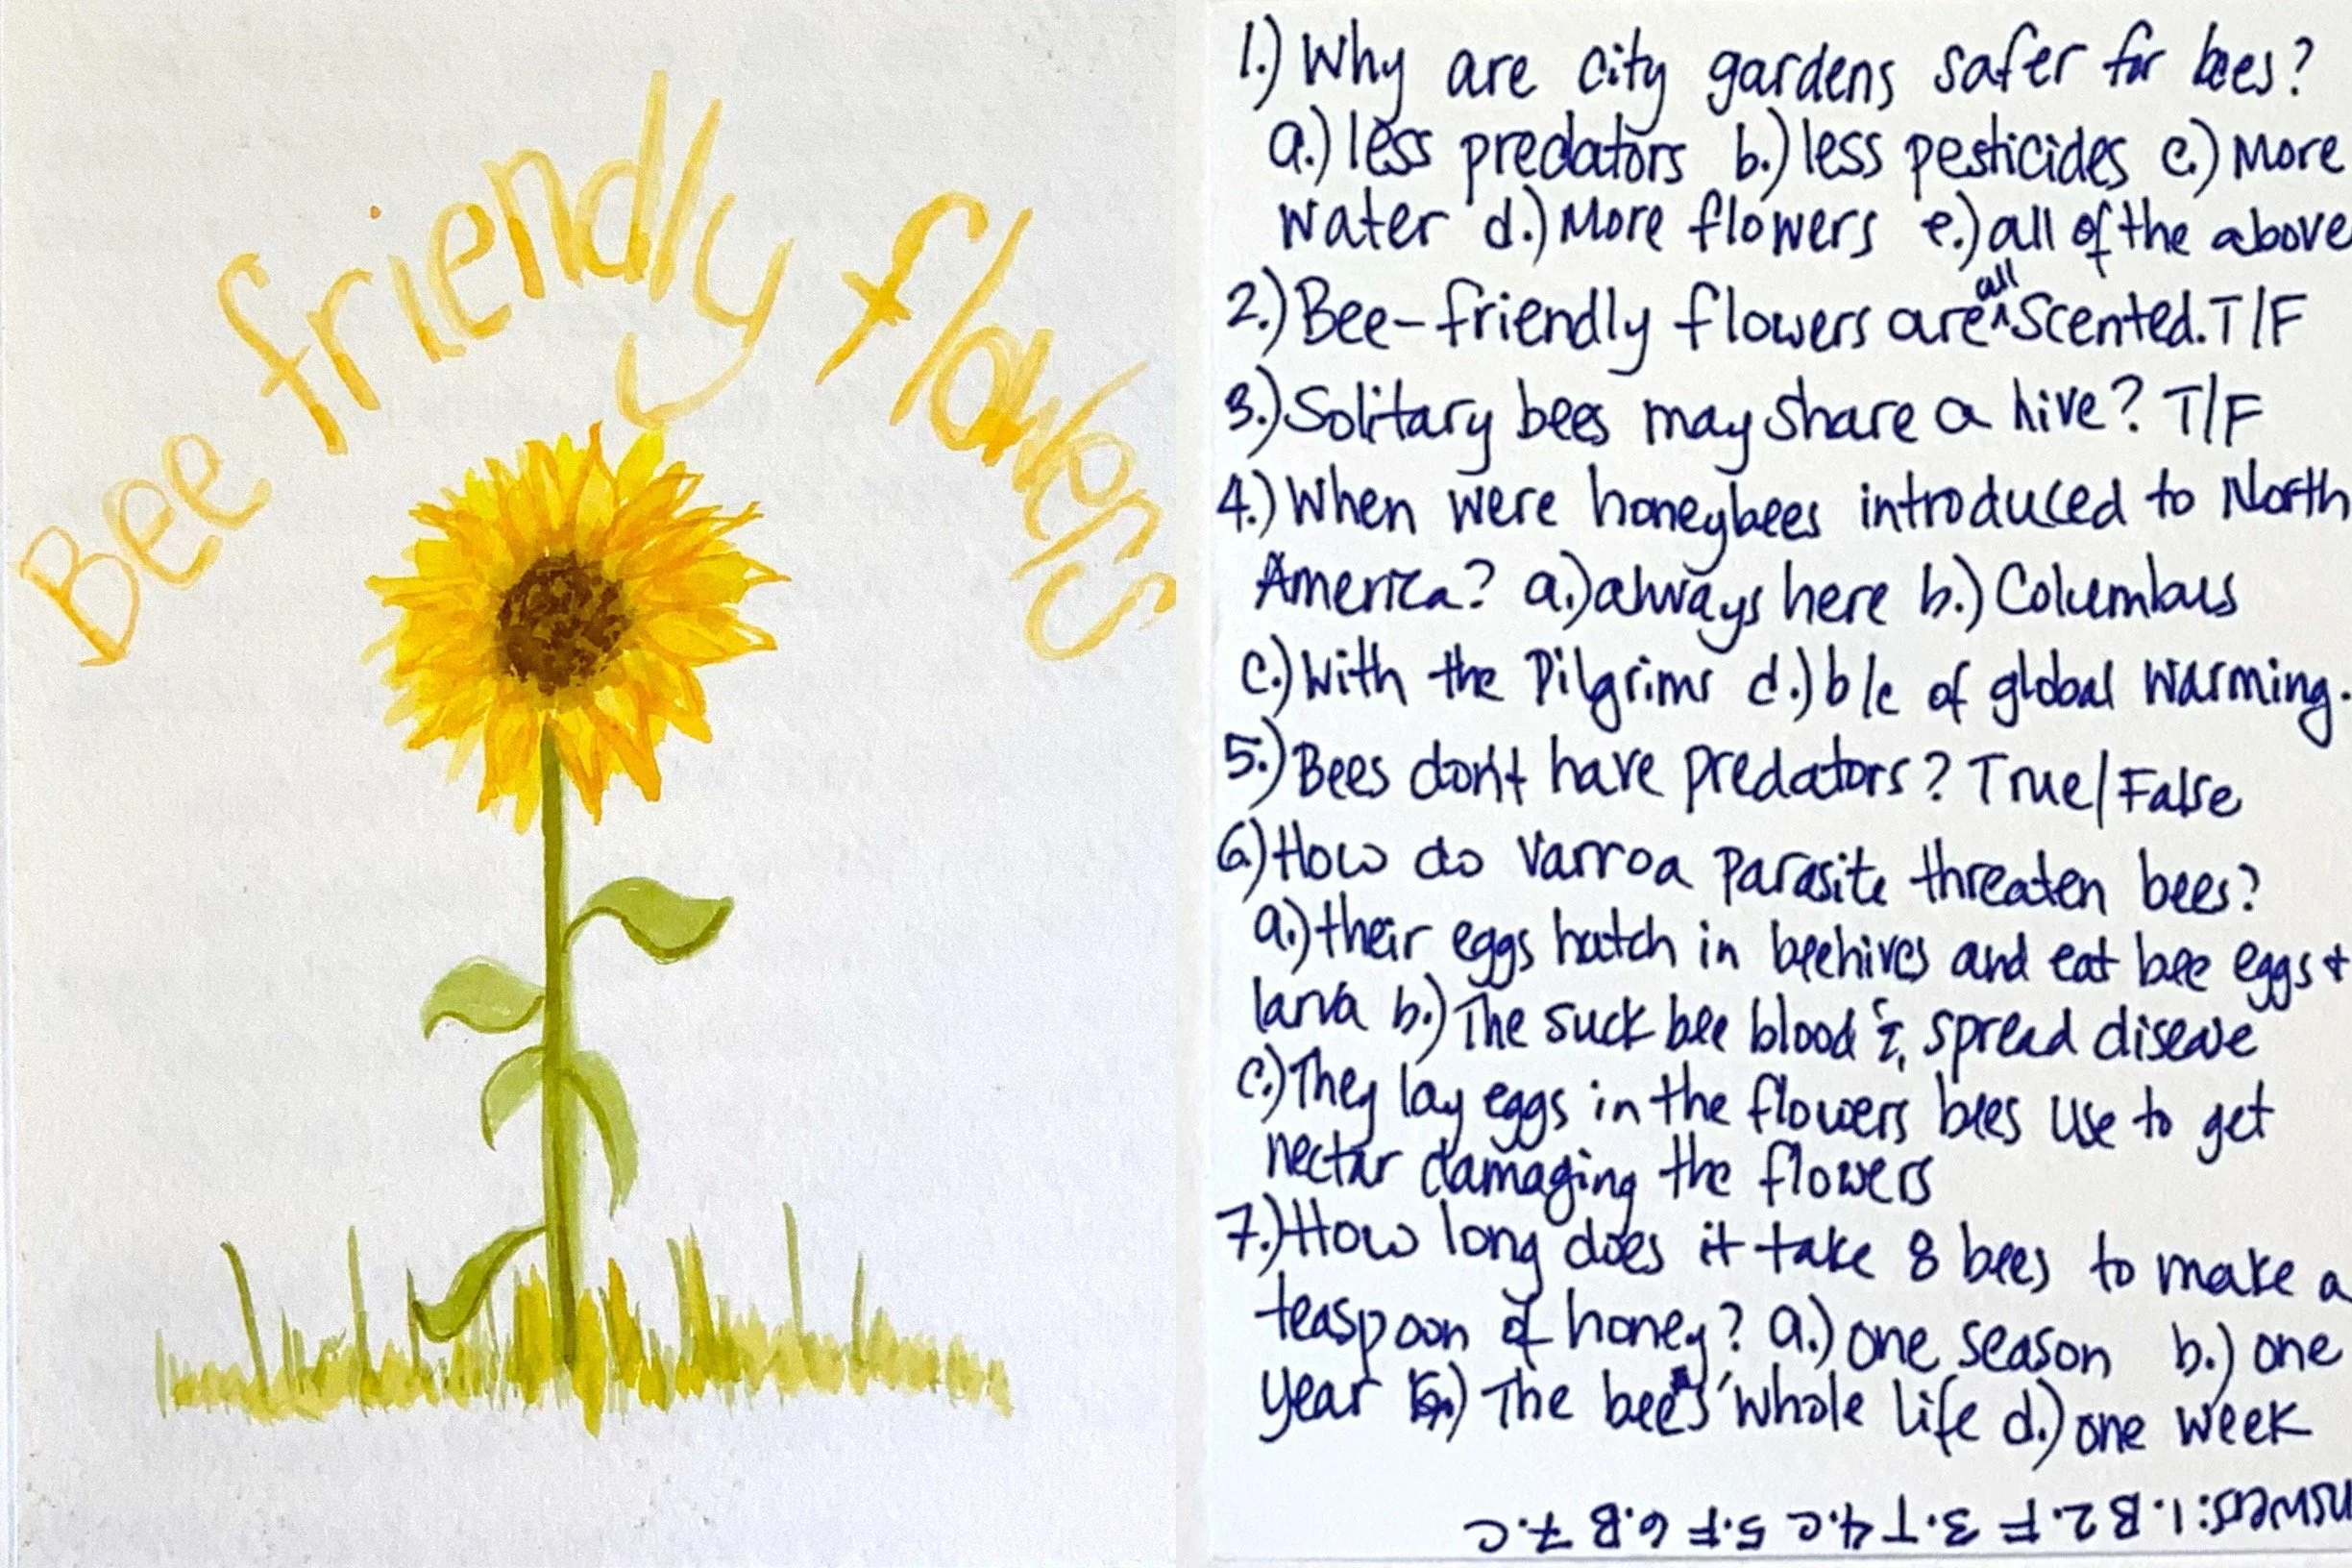 Bee friendly flowers
1.) Why are city gardens safer for bees?
a.) less predators b.) less pesticides c.) More
water d.) More flowers e.) all of the above
2.) Bee-friendly flowers are ^all scented. T/F
3.) Solitary bees may share a hive? T/F
4.) When were honeybees introduced to North
America? a.) always here b.) Columbus
c.) With the Pilgrims d.) b/c of global warming.
5.) Bees don't have predators? True/False
6.) How do Varroa Parasite threaten bees?
a.) their eggs hatch in beehives and eat bee eggs +
larva b.) The suck bee blood & spread disease
c.) They lay eggs in the flowers bees use to get
nectar damaging the flowers
7.) How long does it take 8 bees to make a
teaspoon of honey? a.) one season b.) one
year c.) The bees' whole life d.) one week
nswers: 1. B 2. F 3. T 4. C 5. F 6. B 7. C